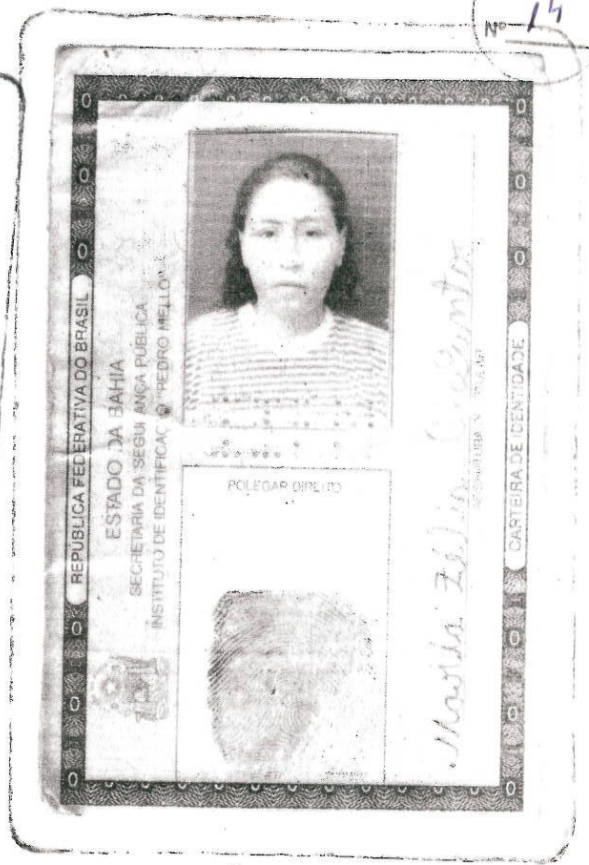 Nº 14
REPÚBLICA FEDERATIVA DO BRASIL
ESTADO DA BAHIA
SECRETARIA DA SEGURANÇA PÚBLICA
INSTITUTO DE IDENTIFICAÇÃO "PEDRO MELLO"
POLEGAR DIREITO
Maria Zélia
CARTEIRA DE IDENTIDADE